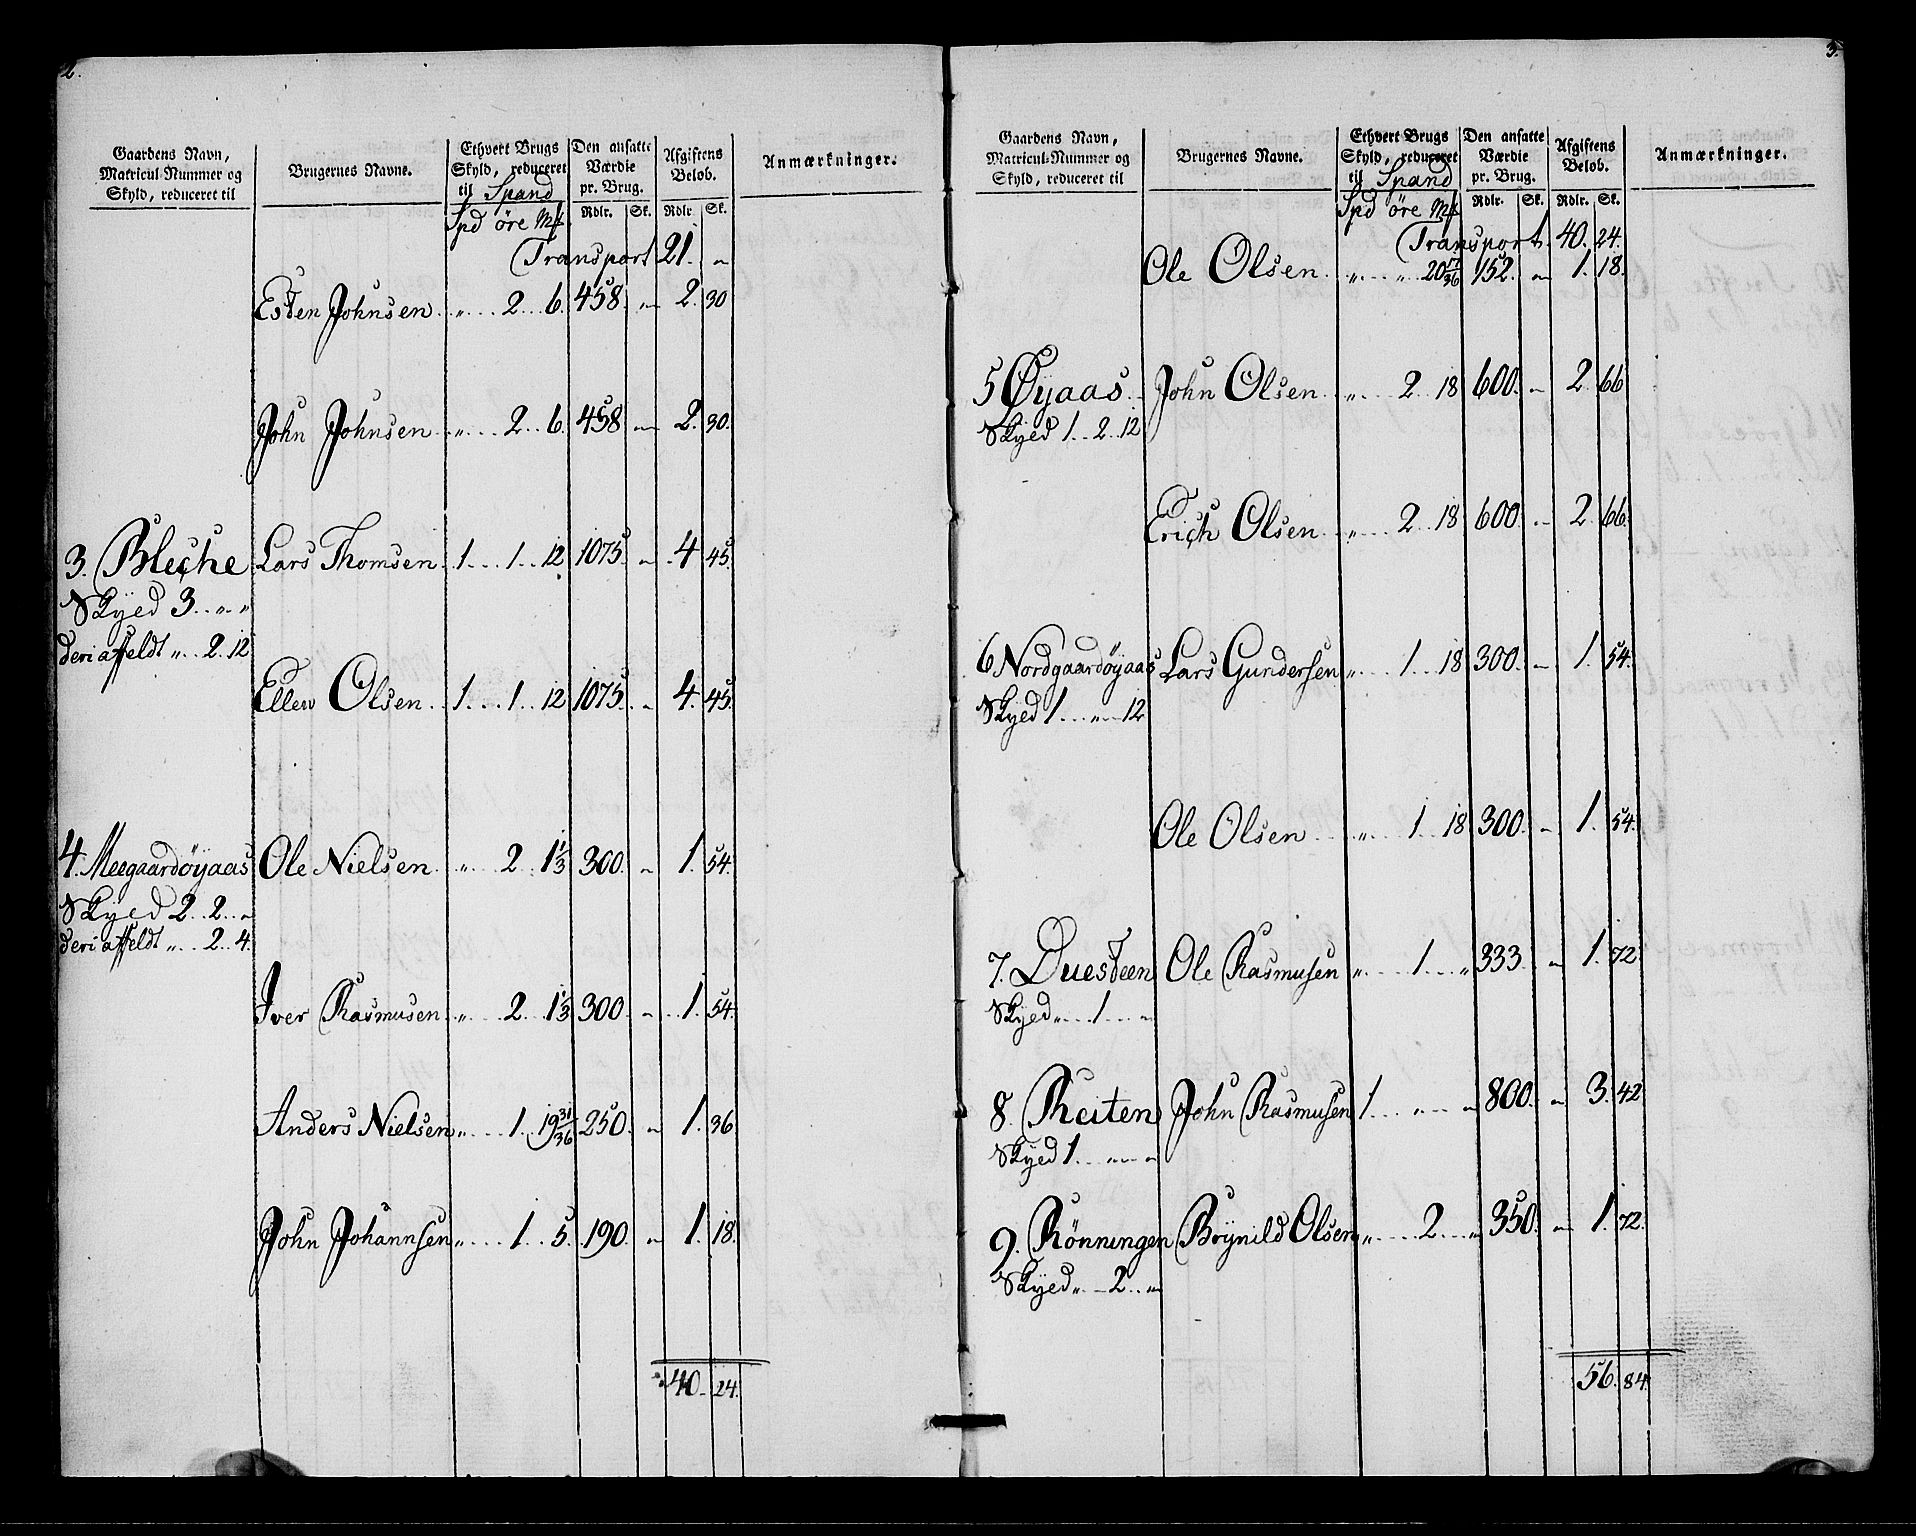 2.
Gaardens Navn, Matricul-Nummer og Skyld, reduceret til | Brugernes Navne. | Ethvert Brugs Skyld, reduceret til Spand | Den ansatte Værdie pr. Brug. | Afgiftens Beløb. | Anmærkninger.
Spd öre Mk | Rdlr. | Sk. | Rdlr. | Sk.
Transport 21. „
Esten Johnsen „ 2 6. 458 „ 2. 30
John Johnsen „ 2 6. 458 „ 2. 30.
3. Bleche Lars Thomsen 1 1 12 1075 „ 4 45.
Skyed 3 „ „
deri affeldt „ 2 12
Ellen Olsen 1 1 12 1075 „ 4. 45.
4. Meegaardöyaas Ole Nielsen „ 2 1 1/3 300 „ 1. 54.
Skyed 2 2 „
deri affeldt „ 2 4.
Iver Rasmusen „ 2 1 1/3 300 „ 1. 54.
Anders Nielsen „ 1 19 31/36 250 „ 1. 36
John Johannsen „ 1 5. 190 „ 1. 18.
40 24.
3.
Gaardens Navn, Matricul-Nummer og Skyld, reduceret til | Brugernes Navne. | Ethvert Brugs Skyld, reduceret til Spand | Den ansatte Værdie pr. Brug. | Afgiftens Beløb. | Anmærkninger.
Spd öre Mk | Rdlr. | Sk. | Rdlr. | Sk.
Transport 40. 24.
Ole Olsen „ „ 20 17/36 152 „ 1. 18.
5 Øyaas John Olsen „ 2 18 600 „ 2 66
Skyed 1 2 12
Erich Olsen „ 2 18 600 „ 2 66.
6 Nordgaardöyaas Lars Gundersen „ 1 18 300 „ 1. 54.
Skyed 1 „ 12
Ole Olsen „ 1 18 300 „ 1. 54.
7. Duesteen Ole Rasmusen „ 1 „ 333 „ 1. 72
Skyed „ 1 „
8. Reiten John Rasmusen 1 „ „ 800 „ 3. 42
Skyed 1 „ „
9. Rönningen Brynild Olsen „ 2 „ 350. „ 1. 72.
Skyed „ 2 „
56. 84.